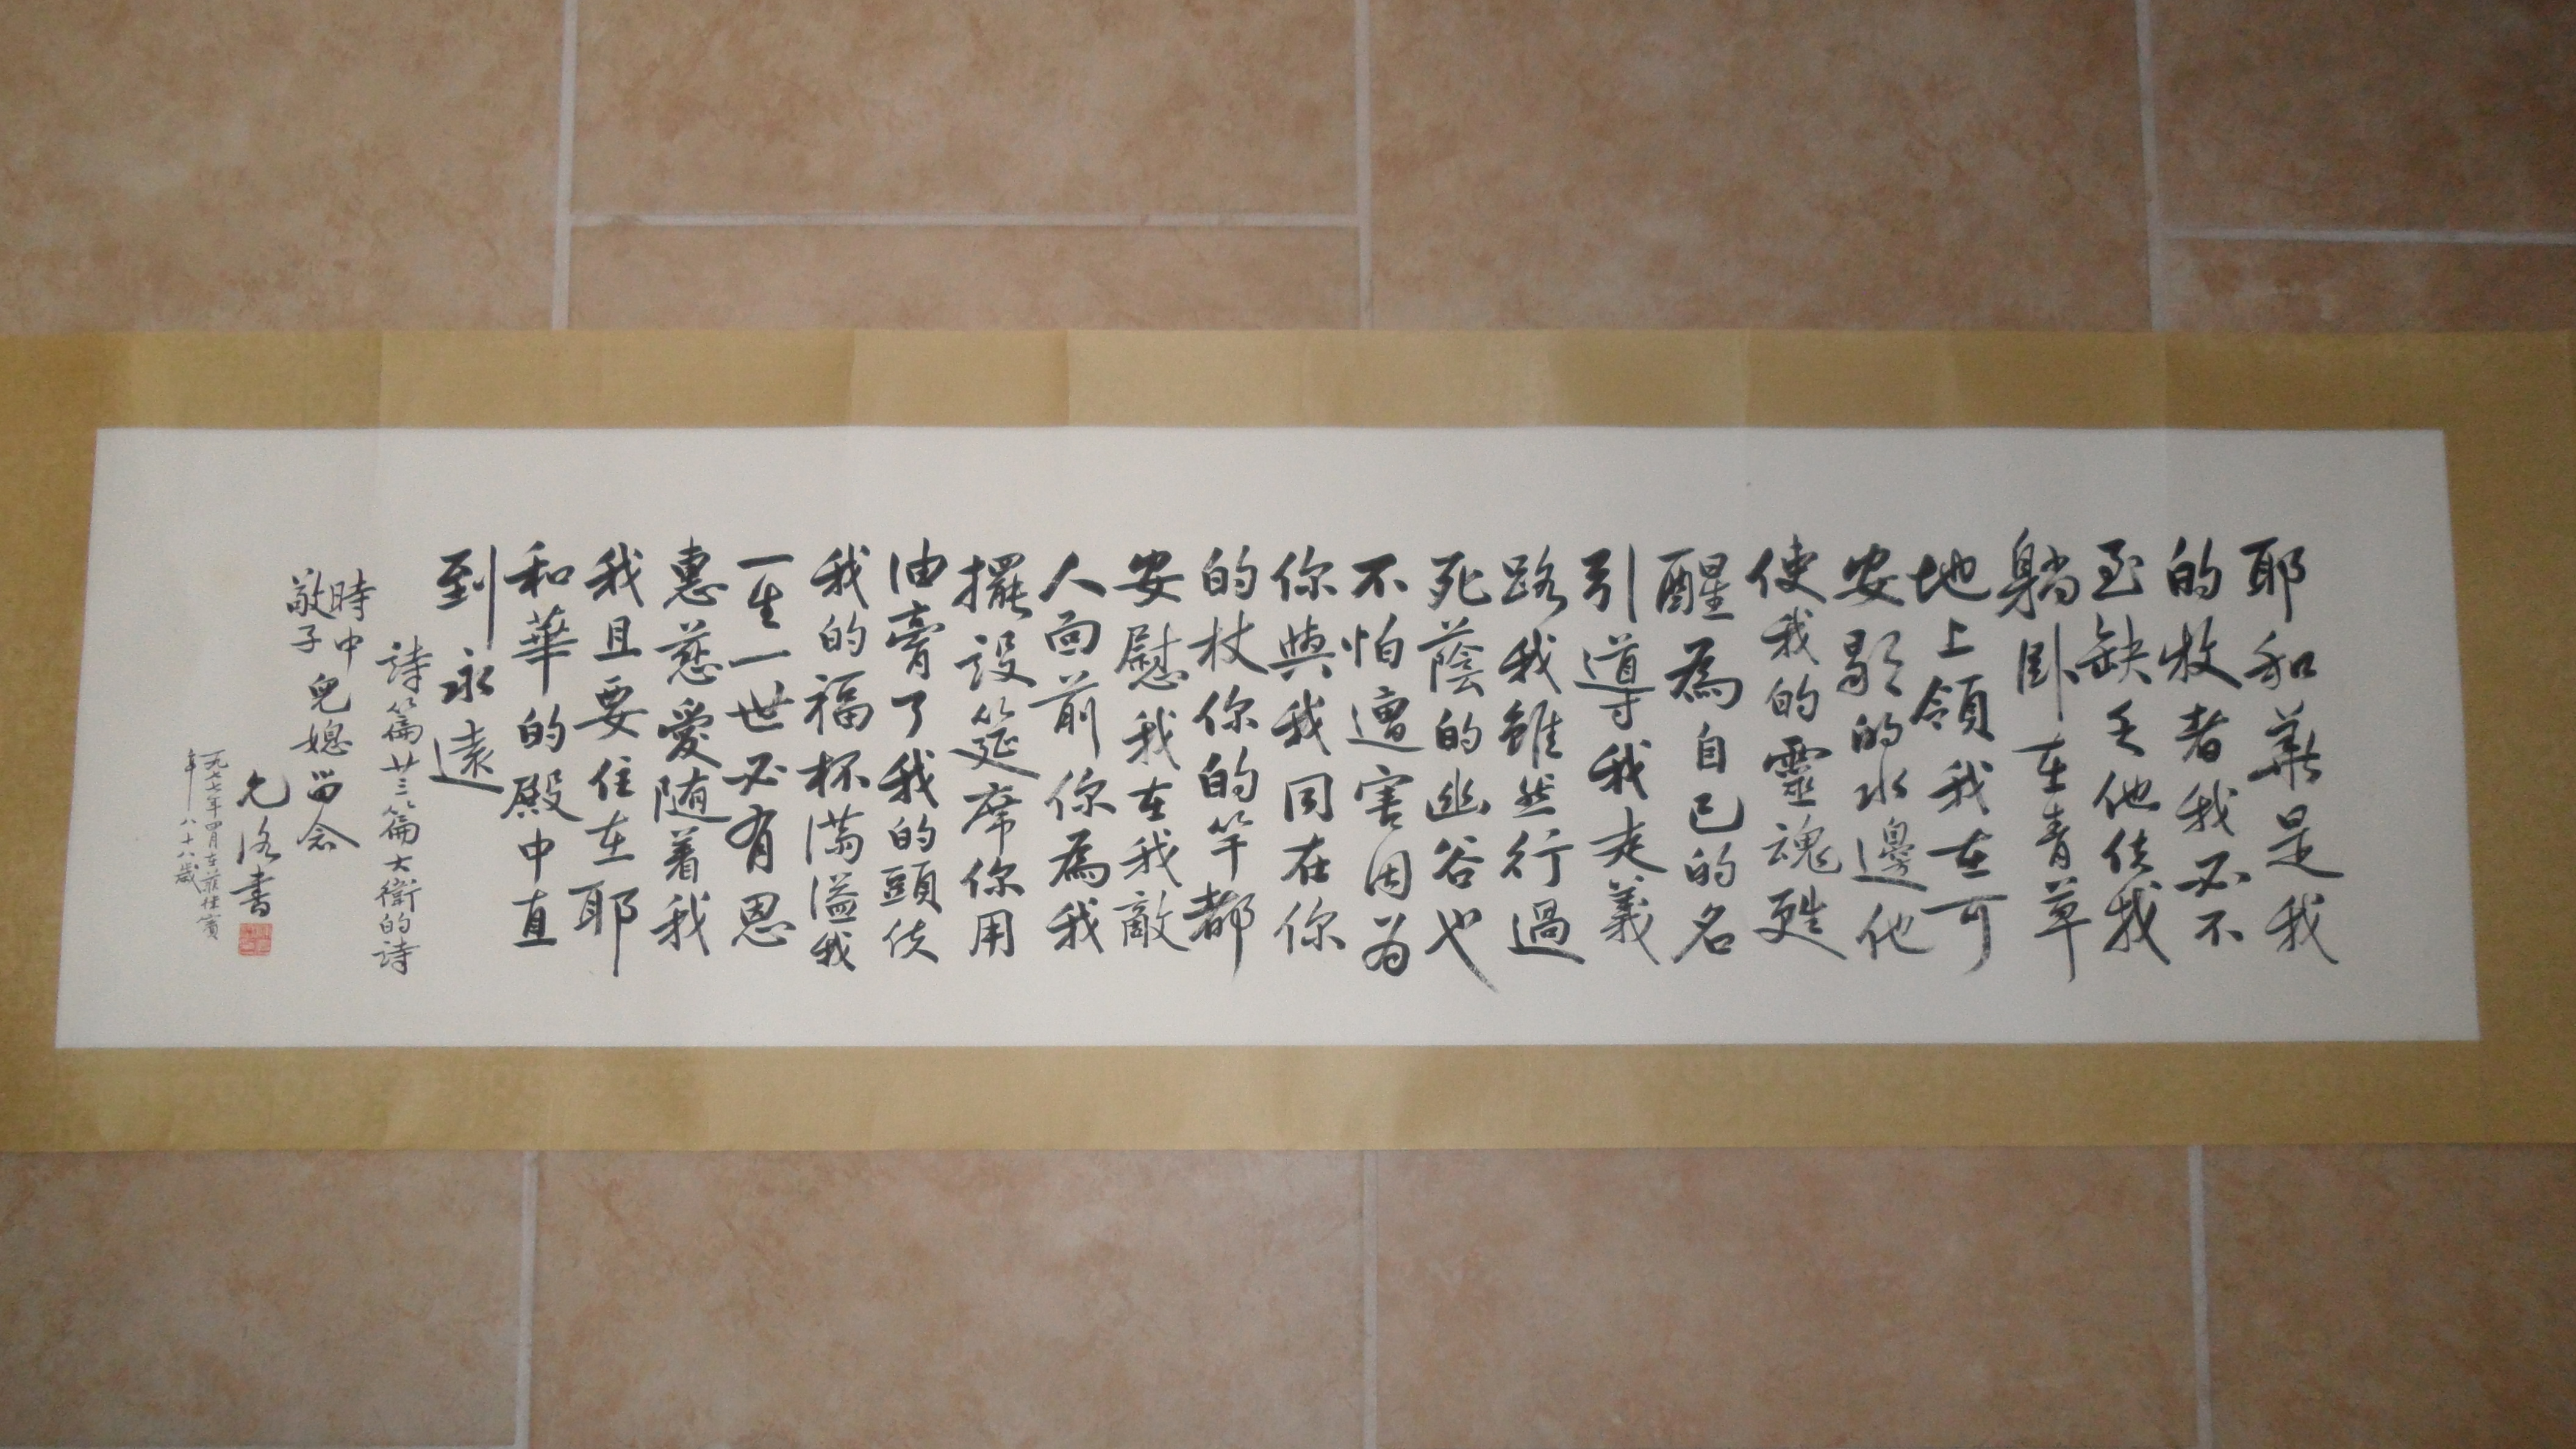 耶和華是我
的牧者我必不
至缺乏他使我
躺臥在青草
地上領我在可
安歇的水邊他
使我的靈魂甦
醒為自己的名
引導我走義
路我雖然行過
死蔭的幽谷也
不怕遭害因为
你與我同在你
的杖你的竿都
安慰我在我敵
人面前你為我
擺設筵席你用
油膏了我的頭使
我的福杯滿溢我
一生一世必有恩
惠慈愛随着我
我且要住在耶
和華的殿中直
到永遠
詩篇廿三篇大衛的詩
時中
敬子兒媳留念
允洛書
一九七七年四月在菲律賓
年八十八歲